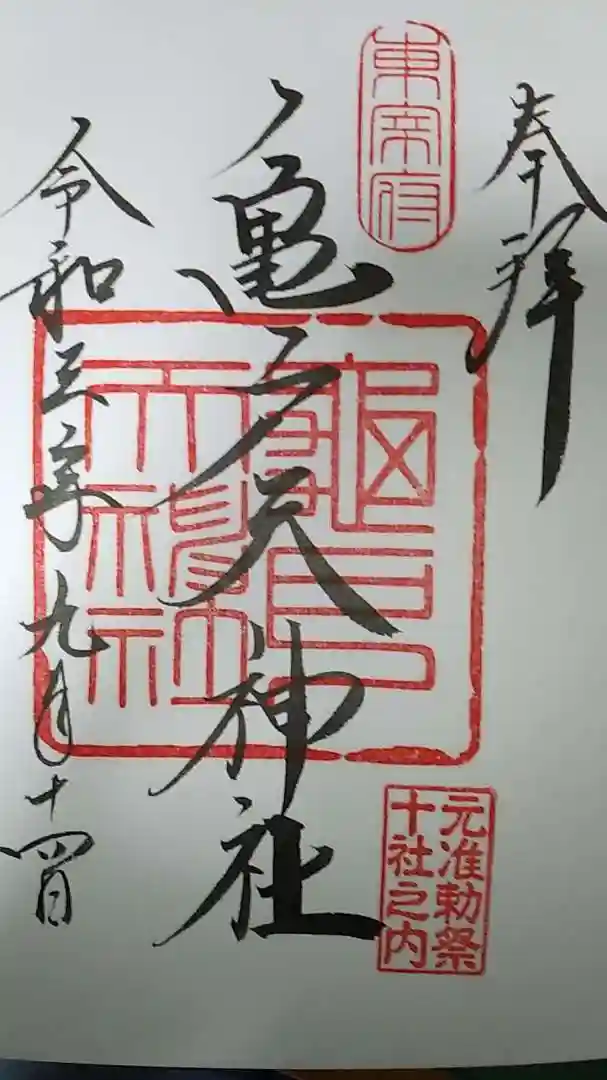 奉拝
東宰府
亀戸天神社
元准勅祭
十社之内
令和三年九月十四日